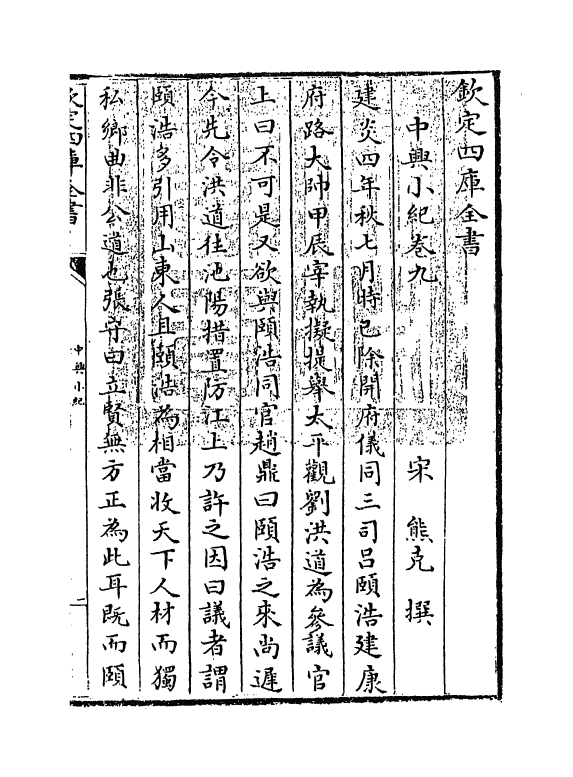 欽定四庫全書
中興小紀卷九
宋 熊克 撰
建炎四年秋七月時已除開府儀同三司吕頤浩建康
府路大帥甲辰宰執擬提舉太平觀劉洪道為參議官
上曰不可是又欲與頤浩同官趙鼎曰頤浩之來尚遲
今先令洪道往池陽措置防江上乃許之因曰議者謂
頤浩多引用山東人且頤浩為相當收天下人材而獨
私鄉曲非公道也張守曰立賢無方正為此耳既而頤
欽定四庫全書
中興小紀